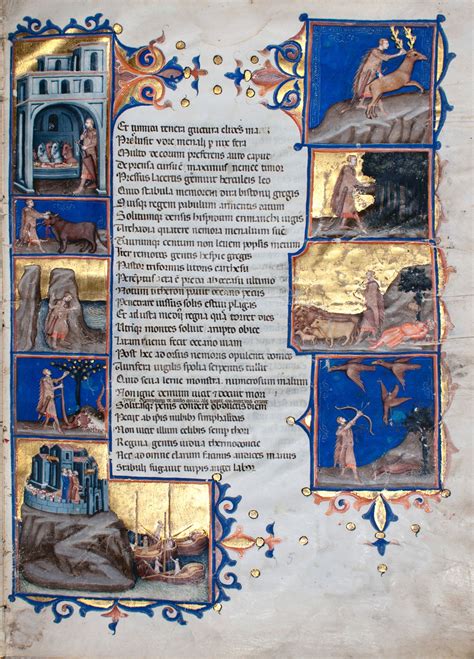 Et tumida tenera guttura elidens ma
Multo decorum preferens auro caput
Deprensa cursu maximus nemee timor
Pressus lacertis gemuit herculeis leo
Quid stabula memorem dira bistonii gregis
Suisque regem pabulum armentis datum
Solitumque densis hispidum erimanthi iugis
Archadia quatere nemora menalium suem
Taurumque centum non leuem populis metum
Inter remotos gentis hesperie greges
Pastor triformis litoris
Peremptus acta est preda ab occasu ultimo
Notum citheron pauit oceano pecus
Penetrare iussus solis estiui plagas
Et adusta medius regna que torret dies
Utrimque montes soluit
Latam ruenti fecit oceano uiam
Post hec nemoris opulenti domos
Aurifera uigilis spolia serpentis tulit
Quid seua lerne monstra numerosum malum
Non igne demum uicit et docuit mori
Solitasque pennis condere obductis diem
Petit ab ipsis nubibus
Non uicit illum celibis semper thori
Regina gentis uidua
Nec ad omne clarum facinus audaces manus
Stabuli fugauit turpis augei labor